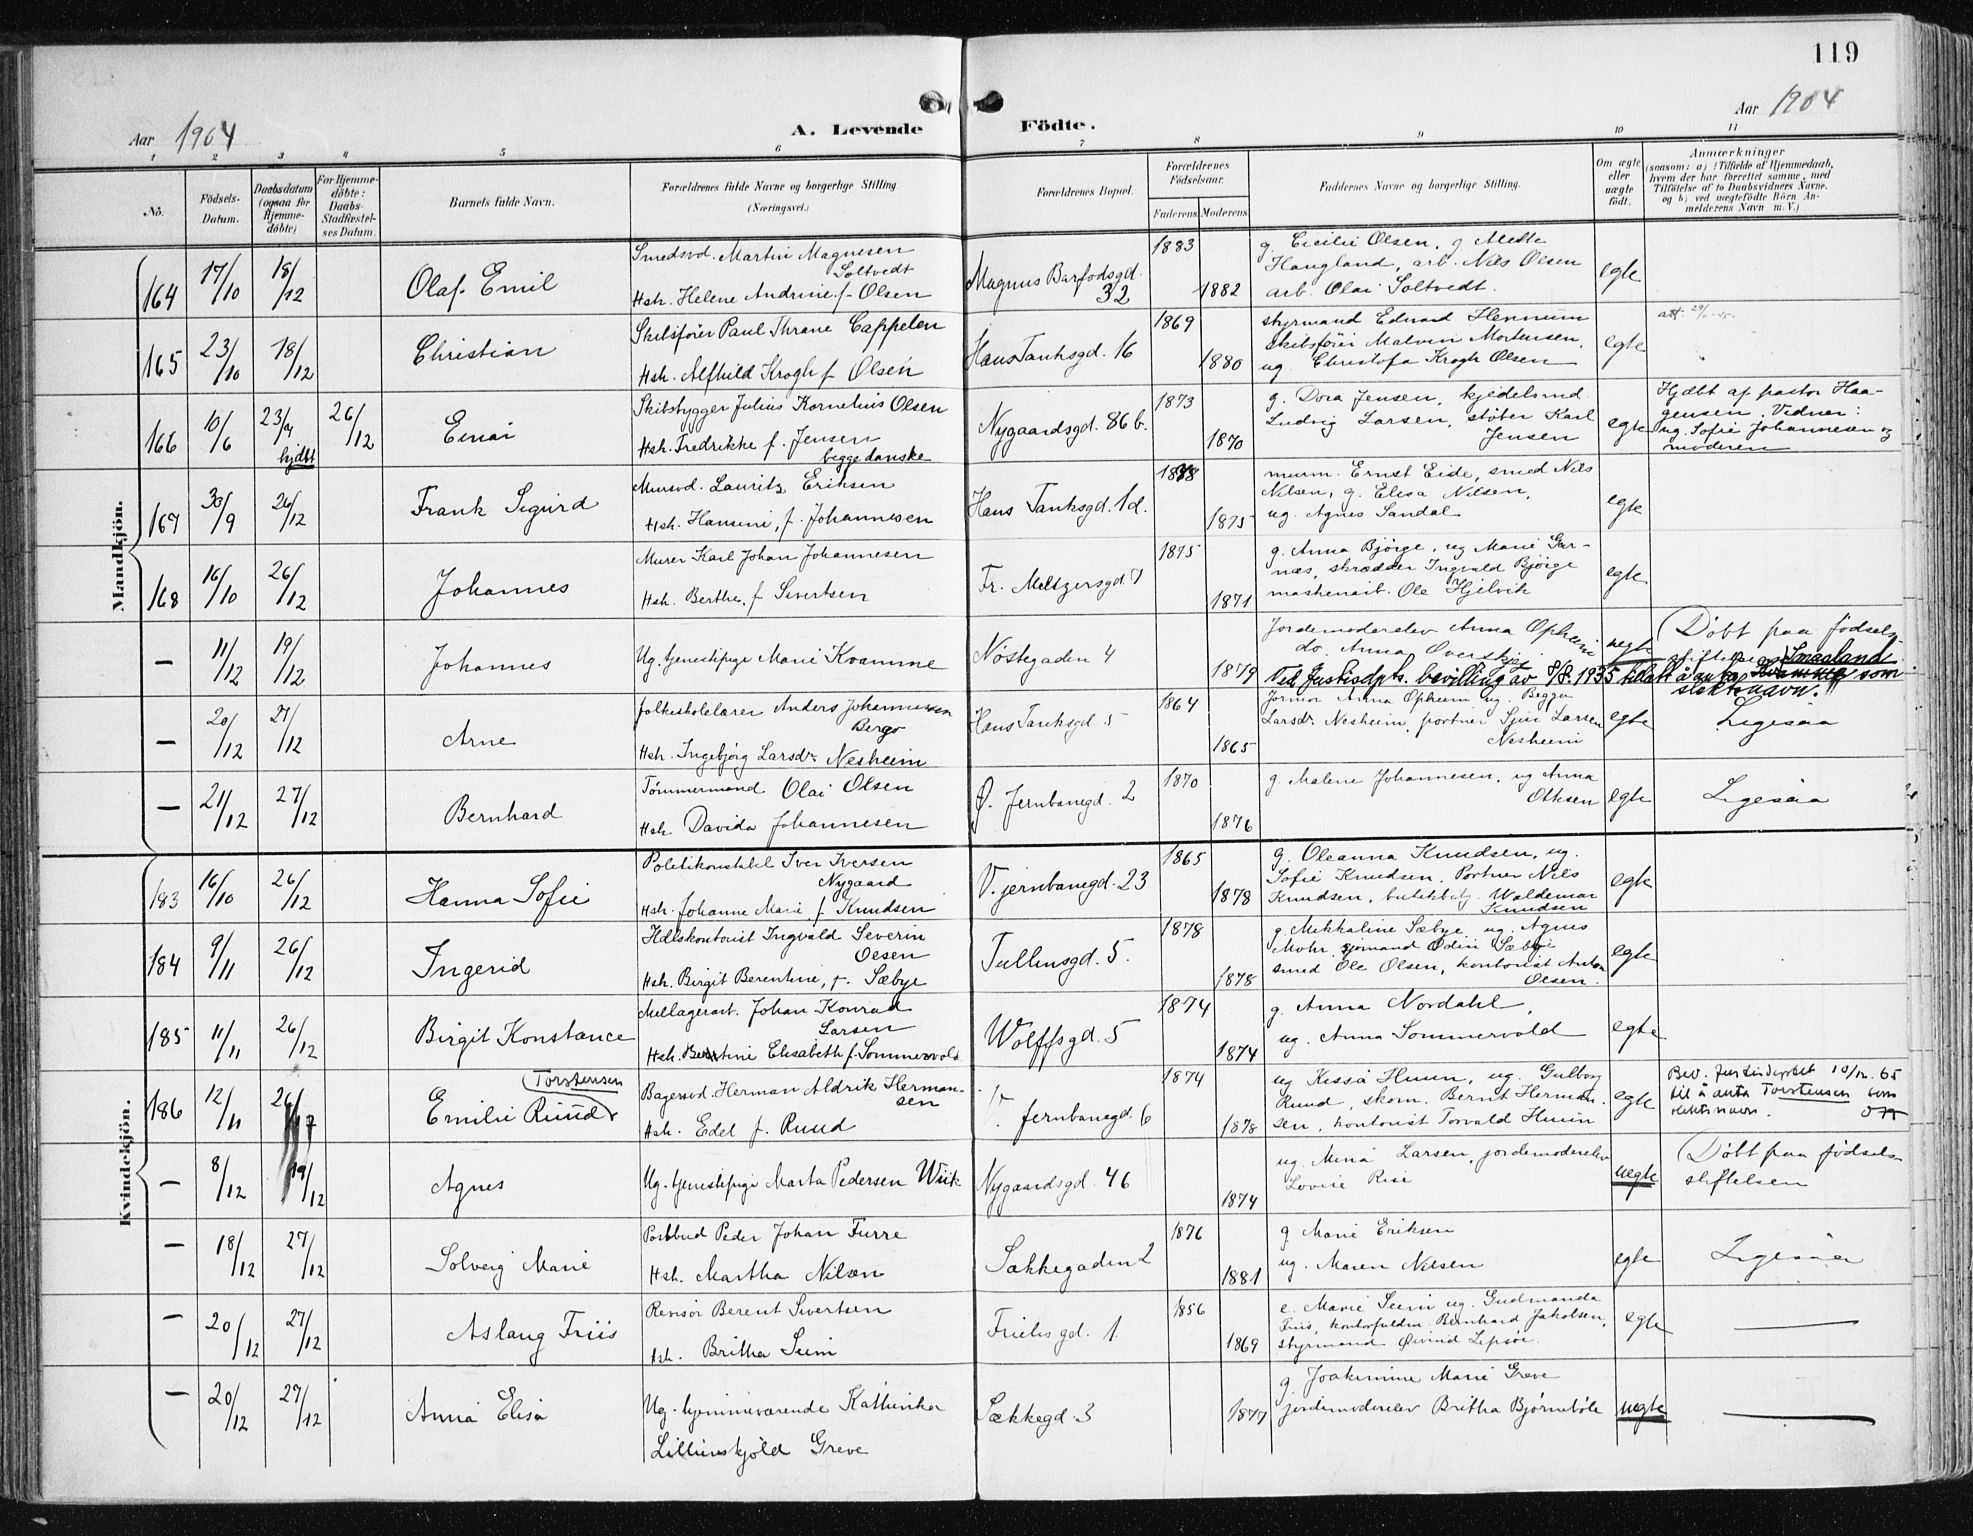 119
Aar 1904
A. Levende Födte.
Aar 1904
1 2 3 4 5 6 7 8 9 10 11
No.
Födsels-Datum.
Daabsdatum (ogsaa for Hjemme-döbte)
For Hjemme-döbte: Daabs-Stadfæstel-ses Datum.
Barnets fulde Navn.
Forældrenes fulde Navne og borgerlige Stilling (Næringsvei.)
Forældrenes Bopæl.
Forældrenes Födselsaar.
Faderens. Moderens.
Faddernes Navne og borgerlige Stilling.
Om ægte eller uægte födt.
Anmærkninger
(saasom: a) i Tilfælde af Hjemmedaab,
hvem der har forrettet samme, med
Tilföielse af to Daabsvidners Navne.
og b) ved uægtefödte Börn An-
melderens Navn m. V.)
Mandkjön.
164 17/10 18/12 Olaf Emil
Smedsvd. Martin Magnesen Soltvedt
Hst. Helene Andrine f. Olsen
Magnus Barfodsgd. 32
1883 1882
g. Cicilie Olsen, g Mette
Haugland, arb. Nils Olsen
arb. Olai Soltvedt.
egte
165 23/10 18/12 Christian
Skibsförer Paul Thrane Cappelen
Hst. Alfhild Krogh f. Olsen
Hans Tanksgd. 16
1869 1880
styrmand Edvard Hennum
skibsförer Malvin Mortensen,
ug. Christofa Krogh Olsen
egte
166 10/6 23/9 hjdbt 26/12 Einar
Skibsbygger Julius Kornelius Olsen
Hst. Fredrikke f. Jensen
begge danske
Nygaardsgd. 86 b.
1873 1870
g. Dora Jensen, kjedelsmd
Ludvig Larsen, støber Karl
Jensen
egte
Hjdbt af pastor Haa-
gensen. Vidner:
ug. Sofie Johannesen og
moderen
167 30/9 26/12 Frank Sigurd
Mursvd. Lauritz Eriksen
Hst. Hanine, f. Johannesen
Hans Tanksgd. 1 d.
1875
murm. Ernst Eide, smed Nils
Nilsen, g. Elisa Nilsen,
ug. Agnes Sandal
egte
168 16/10 26/12 Johannes
Murer Karl Johan Johannesen
Hst. Berthe, f. Sivertsen
Fr. Meltzersgd. 7
1875 1871
g. Anna Bjørge, ug Marie Gar-
næs, skrædder Ingvald Bjørge
maskinarb. Ole Hjelvik
egte
— 11/12 19/12 Johannes
Ug. tjenestepige Marie Kvamme
Nöstegaden 4
1879
Jordemoderelev Anna Opheim
do. Anna Overskjie
uegte
Döbt paa födsels-
stiftelsen
Ved Justisdpts. bevilling av 8/8. 1935 tillatt å anta Smaaland som
slektsnavn.
— 20/12 27/12 Arne
Folkeskolelærer Anders Johannessen
Berge
Hst. Ingebjörg Larsdr. Nesheim
Hans Tanksgd. 5
1864 1865
Jormor Anna Opheim ug. Begga
Larsdr. Nesheim, portner Sjur Larsen
Nesheim
egte
Ligesaa
— 21/12 27/12 Bernhard
Tömmermand Olai Olsen
Hst. Davida Johannesen
Ø. Jernbanegd. 2
1870 1876
g. Malene Johannesen, ug Anna
Ottesen
egte
Ligesaa
Kvindekjön.
183 16/10 26/12 Hanna Sofie
Politikonstabel Iver Iversen
Nygaard
Hst. Johanne Marie, f. Knudsen
V. jernbanegd. 23
1865 1878
g. Oleanna Knudsen, ug.
Sofie Knudsen, Portner Nils
Knudsen, butikbetj. Waldemar
Knudsen
egte
184 9/11 26/12 Ingerid
Hdlskontorist Ingvald Severin
Olsen
Hst. Birgit Berentine, f. Sæbye
Tullinsgd. 5.
1878 1878
g. Mekkaline Sæbye, ug. Agnes
Mohr, sjömand Odin Sæbye
smed Ole Olsen, kontorist Anton
Olsen.
egte
185 11/11 26/12 Birgit Konstance
Mellagerarb. Johan Konrad
Larsen
Hst. Elisabeth f. Sommervold
Wolffsgd. 5
1874 1874
g. Anna Nordahl,
ug. Anna Sommervold
egte
186 12/11 26/12 Emilie Ruud Torstensen
Bagersvd. Herman Aldrik Herman-
sen
Hst. Edel f. Ruud
V. jernbanegd. 6
1874 1878
ug Kissa Huun, ug. Gulborg
Ruud, skom. Bernt Herman-
sen, kontorist Torvald Huun
egte
Bev. Justisdeptet 10/12. 65
til å anta Torstensen som
slektsnavn.
— 8/12 19/12 Agnes
Ug. tjenestepige Marta Pedersen Wiik
Nygaardsgd. 46
1874
ug. Mina Larsen, jordemoderelev
Lovise Rise
uegte
Döbt paa födsels-
stiftelsen
— 18/12 27/12 Solveig Marie
Postbud Peder Johan Furre
Hst. Martha Nilsen
Sækkegaden 2
1876 1881
g Marie Eriksen
ug. Maren Nilsen
egte
Ligesaa
— 20/12 27/12 Aslaug Friis
Revisor Berent Sivertsen
Hst. Britha Seim
Frielesgd. 1
1856 1869
e. Marie Seim ug. Gudmanda
Friis, kontorfuldm. Bernhard Jakobsen,
styrmand Øivind Lepsöe.
egte
— 20/12 27/12 Anna Elisa
Ug. hjemmeværende Kathinka
Lillienskjöld Greve
Sækkegd. 3
1877
g. Joakimine Marie Greve
jordemoderelev Britha Bjørnebøle
uegte